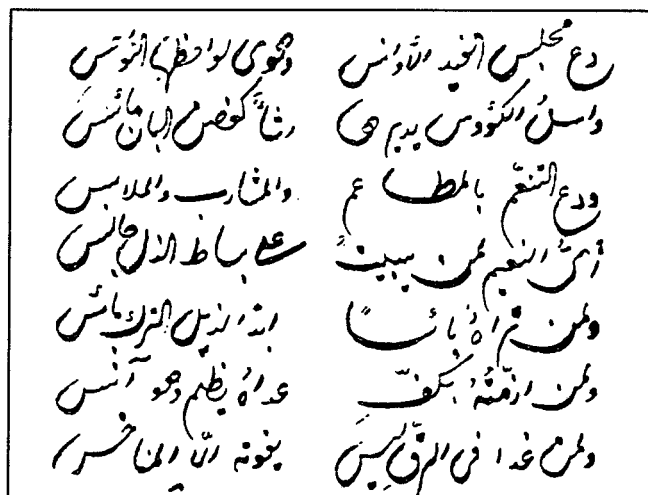 دع مجلس الغيد الأوانس وهوى لواحظها النواعس
واسلُ الكؤوس يديرها رشأً كغصن البان مائس
ودع التنعّم بالمطاعم والمشارب والملابس
أيُّ النعيم لمن يبيتُ على بساط الذل جالس
ولمن تراهُ بائسًا ابدا لذيل الترك بائس
ولمن ازمّتهُ بكفّ عداهُ يظلم وهو آنس
ولمن غدا في الرقّ ليسَ يفوته الّا المناخس